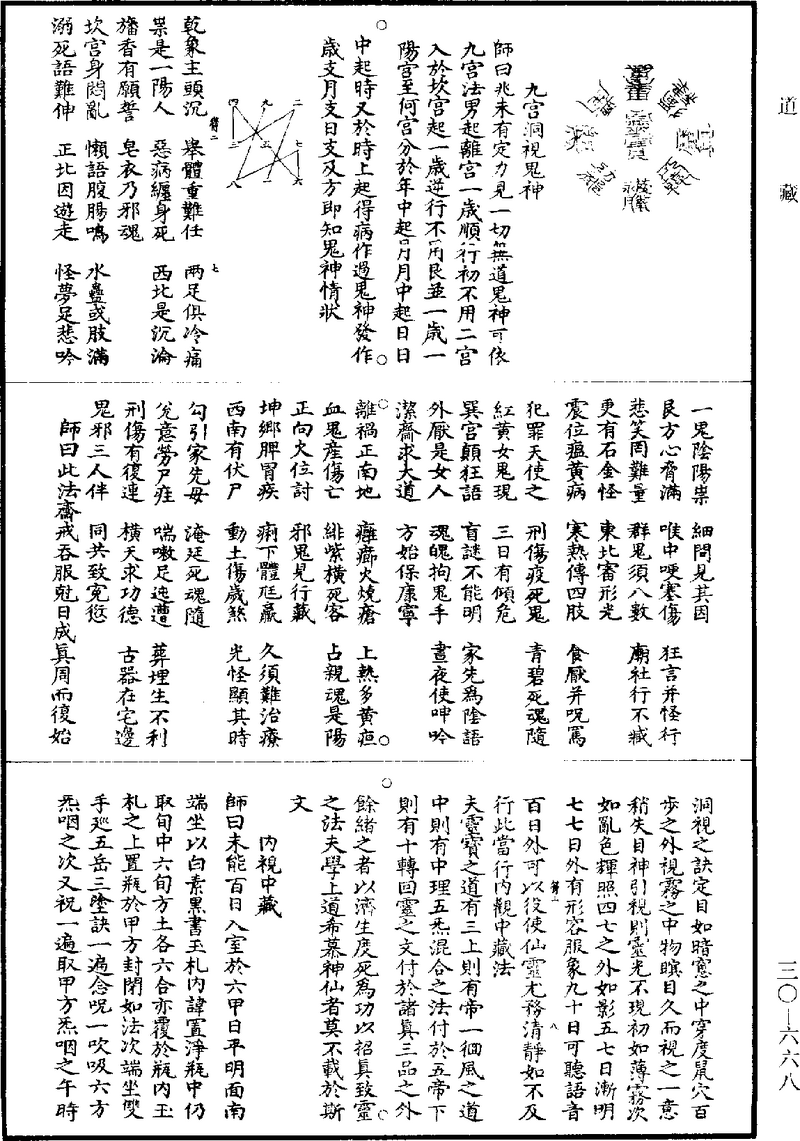 道藏
三〇—六六八
九宮洞視鬼神
師曰兆未有定力見一切無道鬼神可依
九宮法男起離宮一歲順行初不用二宮
入於坎宮起一歲逆行不用艮並一歲一
陽宮至何宮分於年中起月月中起日日
中起時又於時上起得病作過鬼神發作
歲支月支日支及方即知鬼神情狀
二
七
六
九
五
一
四
三
八
乾象主頭沉 舉體重難任 兩足俱冷痛
祟是一陽人 惡病纏身死 西北是沉淪
旛香有願誓 皂衣乃邪魂
坎宮身悶亂 懶語腹腸鳴 水蠱或肢滿
溺死語難伸 正北因遊走 怪夢足悲吟
一鬼陰陽祟 細問見其因
艮方心脅滿 喉中哽塞傷 狂言并怪行
悲笑罔難量 群鬼須八數 廟社行不臧
更有石金怪 東北審形光
震位瘟黃病 寒熱傳四肢 食厭并呪罵
犯罪天使之 刑傷疫死鬼 青碧死魂隨
紅黃女鬼現 三日有傾危
巽宮顛狂語 盲謎不能明 家先為陰語
外厭是女人 魂魄拘鬼手 晝夜使呻吟
潔齋求大道 方始保康寧
離禍正南地 癰癤火燒瘡 上熱多黃疸
血鬼產傷亡 緋紫橫死客 占親魂是陽
正向火位討 邪鬼見行藏
坤鄉脾胃疾 痢下體尪羸 久須難治療
西南有伏尸 動土傷歲煞 光怪顯其時
勾引家先母 淹延死魂隨
兌意勞尸疰 喘嗽足迍邅 葬埋生不利
刑傷有復連 橫天求功德 古器在宅邊
鬼邪三人伴 同共致冤愆
師曰此法齋戒吞服尅日成真周而復始
洞視之訣定目如暗窓之中穿度鼠穴百
步之外視霧之中物瞑目久而視之一意
稍失目神引視則靈光不現初如薄霧次
如亂色輝照四七之外如影五七日漸明
七七日外有形容服象九十日可聽語音
百日外可以役使仙靈尤務清靜如不及
行此當行內觀中藏法
夫靈寶之道有三上則有帝一徊風之道
中則有中理五炁混合之法付於五帝下
則有十轉回靈之文付於諸真三品之外
餘緒之者以濟生度死為功以招真致靈
之法夫學上道希慕神仙者莫不載於斯
文
內視中藏
師曰未能百日入室於六甲日平明面南
端坐以白素黑書玉札內諱置淨瓶中仍
取旬中六旬方土各六合亦覆於瓶內玉
札之上置瓶於甲方封閉如法次端坐雙
手廵五岳三塗訣一遍念呪一吹吸六方
炁咽之次又祝一遍取甲方炁咽之午時